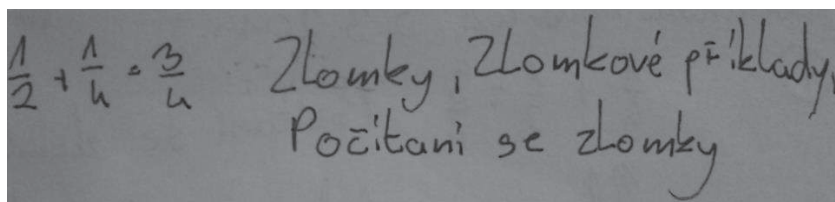 1/2 + 1/4 = 3/4 Zlomky, Zlomkové příklady,
Počítaní se zlomky